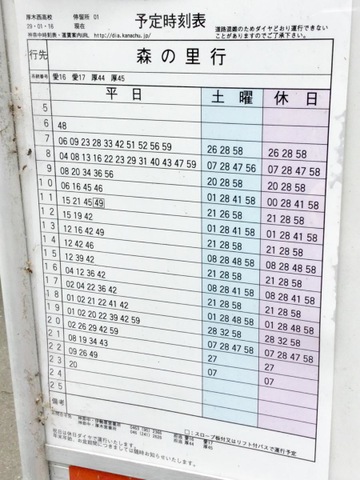 厚木西高校 停留所 01
29-01-16
神奈中時刻表・運賃案内URL http://dia.kanachu.jp/
予定時刻表
道路混雑のためダイヤどおり運行できない
ことがありますのでご了承下さい。
行先 森の里行
系統番号 愛16 愛17 厚44 厚45
平日 土曜 休日
5
6 48
7 06 09 23 28 33 42 51 52 56 59 26 28 58 26 28 58
8 04 08 13 16 22 23 29 31 40 43 47 59 07 28 47 56 07 28 47 58
9 08 20 34 36 56 20 28 58 20 28 58
10 06 16 45 46 01 28 41 58 00 28 41 58
11 15 21 45 49 21 26 58 21 28 58
12 15 19 42 01 28 41 58 01 28 41 58
13 12 16 42 49 21 28 58 21 28 58
14 12 42 46 08 28 48 58 08 28 48 58
15 12 39 42 21 28 58 21 28 58
16 04 12 36 42 01 28 41 58 01 28 41 58
17 02 04 22 36 42 21 28 58 21 28 58
18 01 02 21 22 41 42 01 28 48 58 01 28 48 58
19 01 02 20 22 39 42 59 28 32 58 28 32 58
20 02 26 29 42 59 07 28 47 58 07 28 47 58
21 08 19 34 43 27 27
22 09 26 49 07 07
23 20
24
25
備考
□スロープ板付又はリフト付バスで運行予定